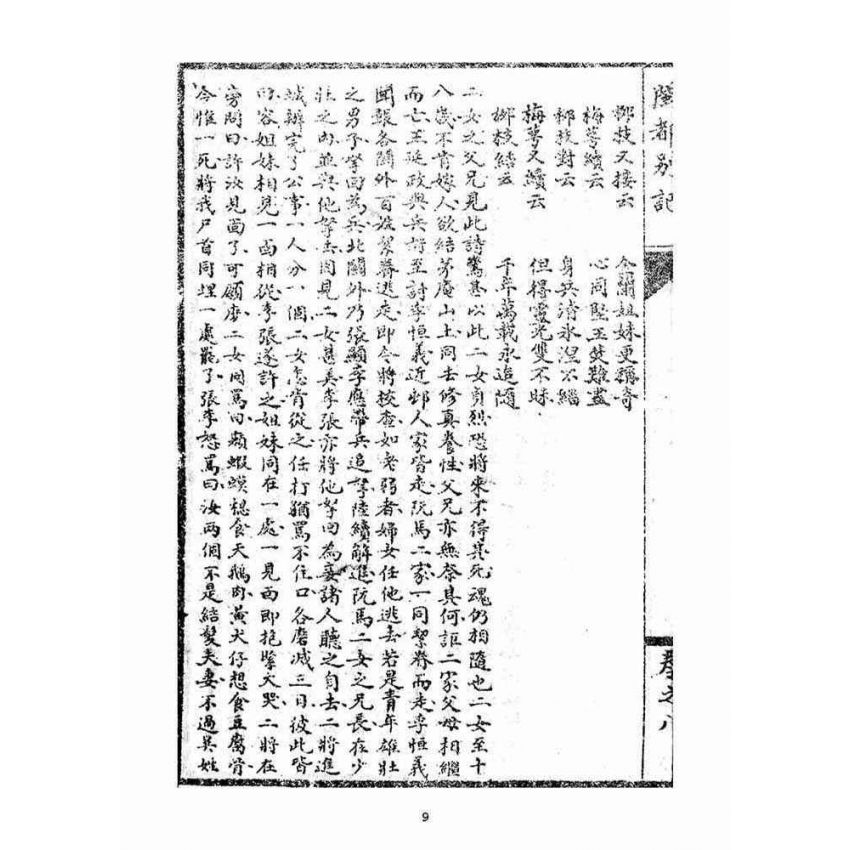 閩都別記
卷之八
柳枝又接云 金蘭姐妹更稱奇
梅萼續云 心同堅玉莫難蓋
柳枝對云 身與清氷涅不緇
梅萼又續云 但得靈光雙不昧
柳枝結云 千年萬載永追隨
二女之父兄見此詩驚甚以此二女貞烈恐將來不得其死魂仍相隨也二女至十
八歲不肯嫁人欲結茅庵山上同去修真養性父兄亦無奈其何詎二家父母相繼
而亡王延政與兵討至討李恒義近邨人家皆走阮馬二家一同挈眷而走李恒義
聞報各關外百姓挈眷逃走即令將校查如老弱者婦女任他逃去若是青年雄壯
之男子拏回為兵北關外乃張顯李應帶兵追拏陸續解進阮馬二女之兄長在少
壯之內並與他拏去因見二女甚美李張亦將他拏回為妾諸人聽之自去二將進
城辦完了公事一人分一個二女怎肯從之任打猶罵不住口各磨滅三日彼此皆
求容姐妹相見一面相從李張遂許之姐妹同在一處一見面即抱拏大哭二將在
旁問曰許汝見面了可願麼二女同罵曰癩蝦蟆想食天鵝肉黃犬仔想食豆腐骨
今惟一死將我尸首同埋一處罷了張李怒罵曰汝兩個不是結髮夫妻不過異姓
9